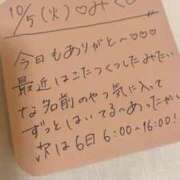 10/5(火)♡みく
今日もありがと〜♡♡♡
最近はこたつくつしたみたい
な名前のやつ気に入って
ずっとはいてる〜あったかい
次は6日 6:00〜16:00!